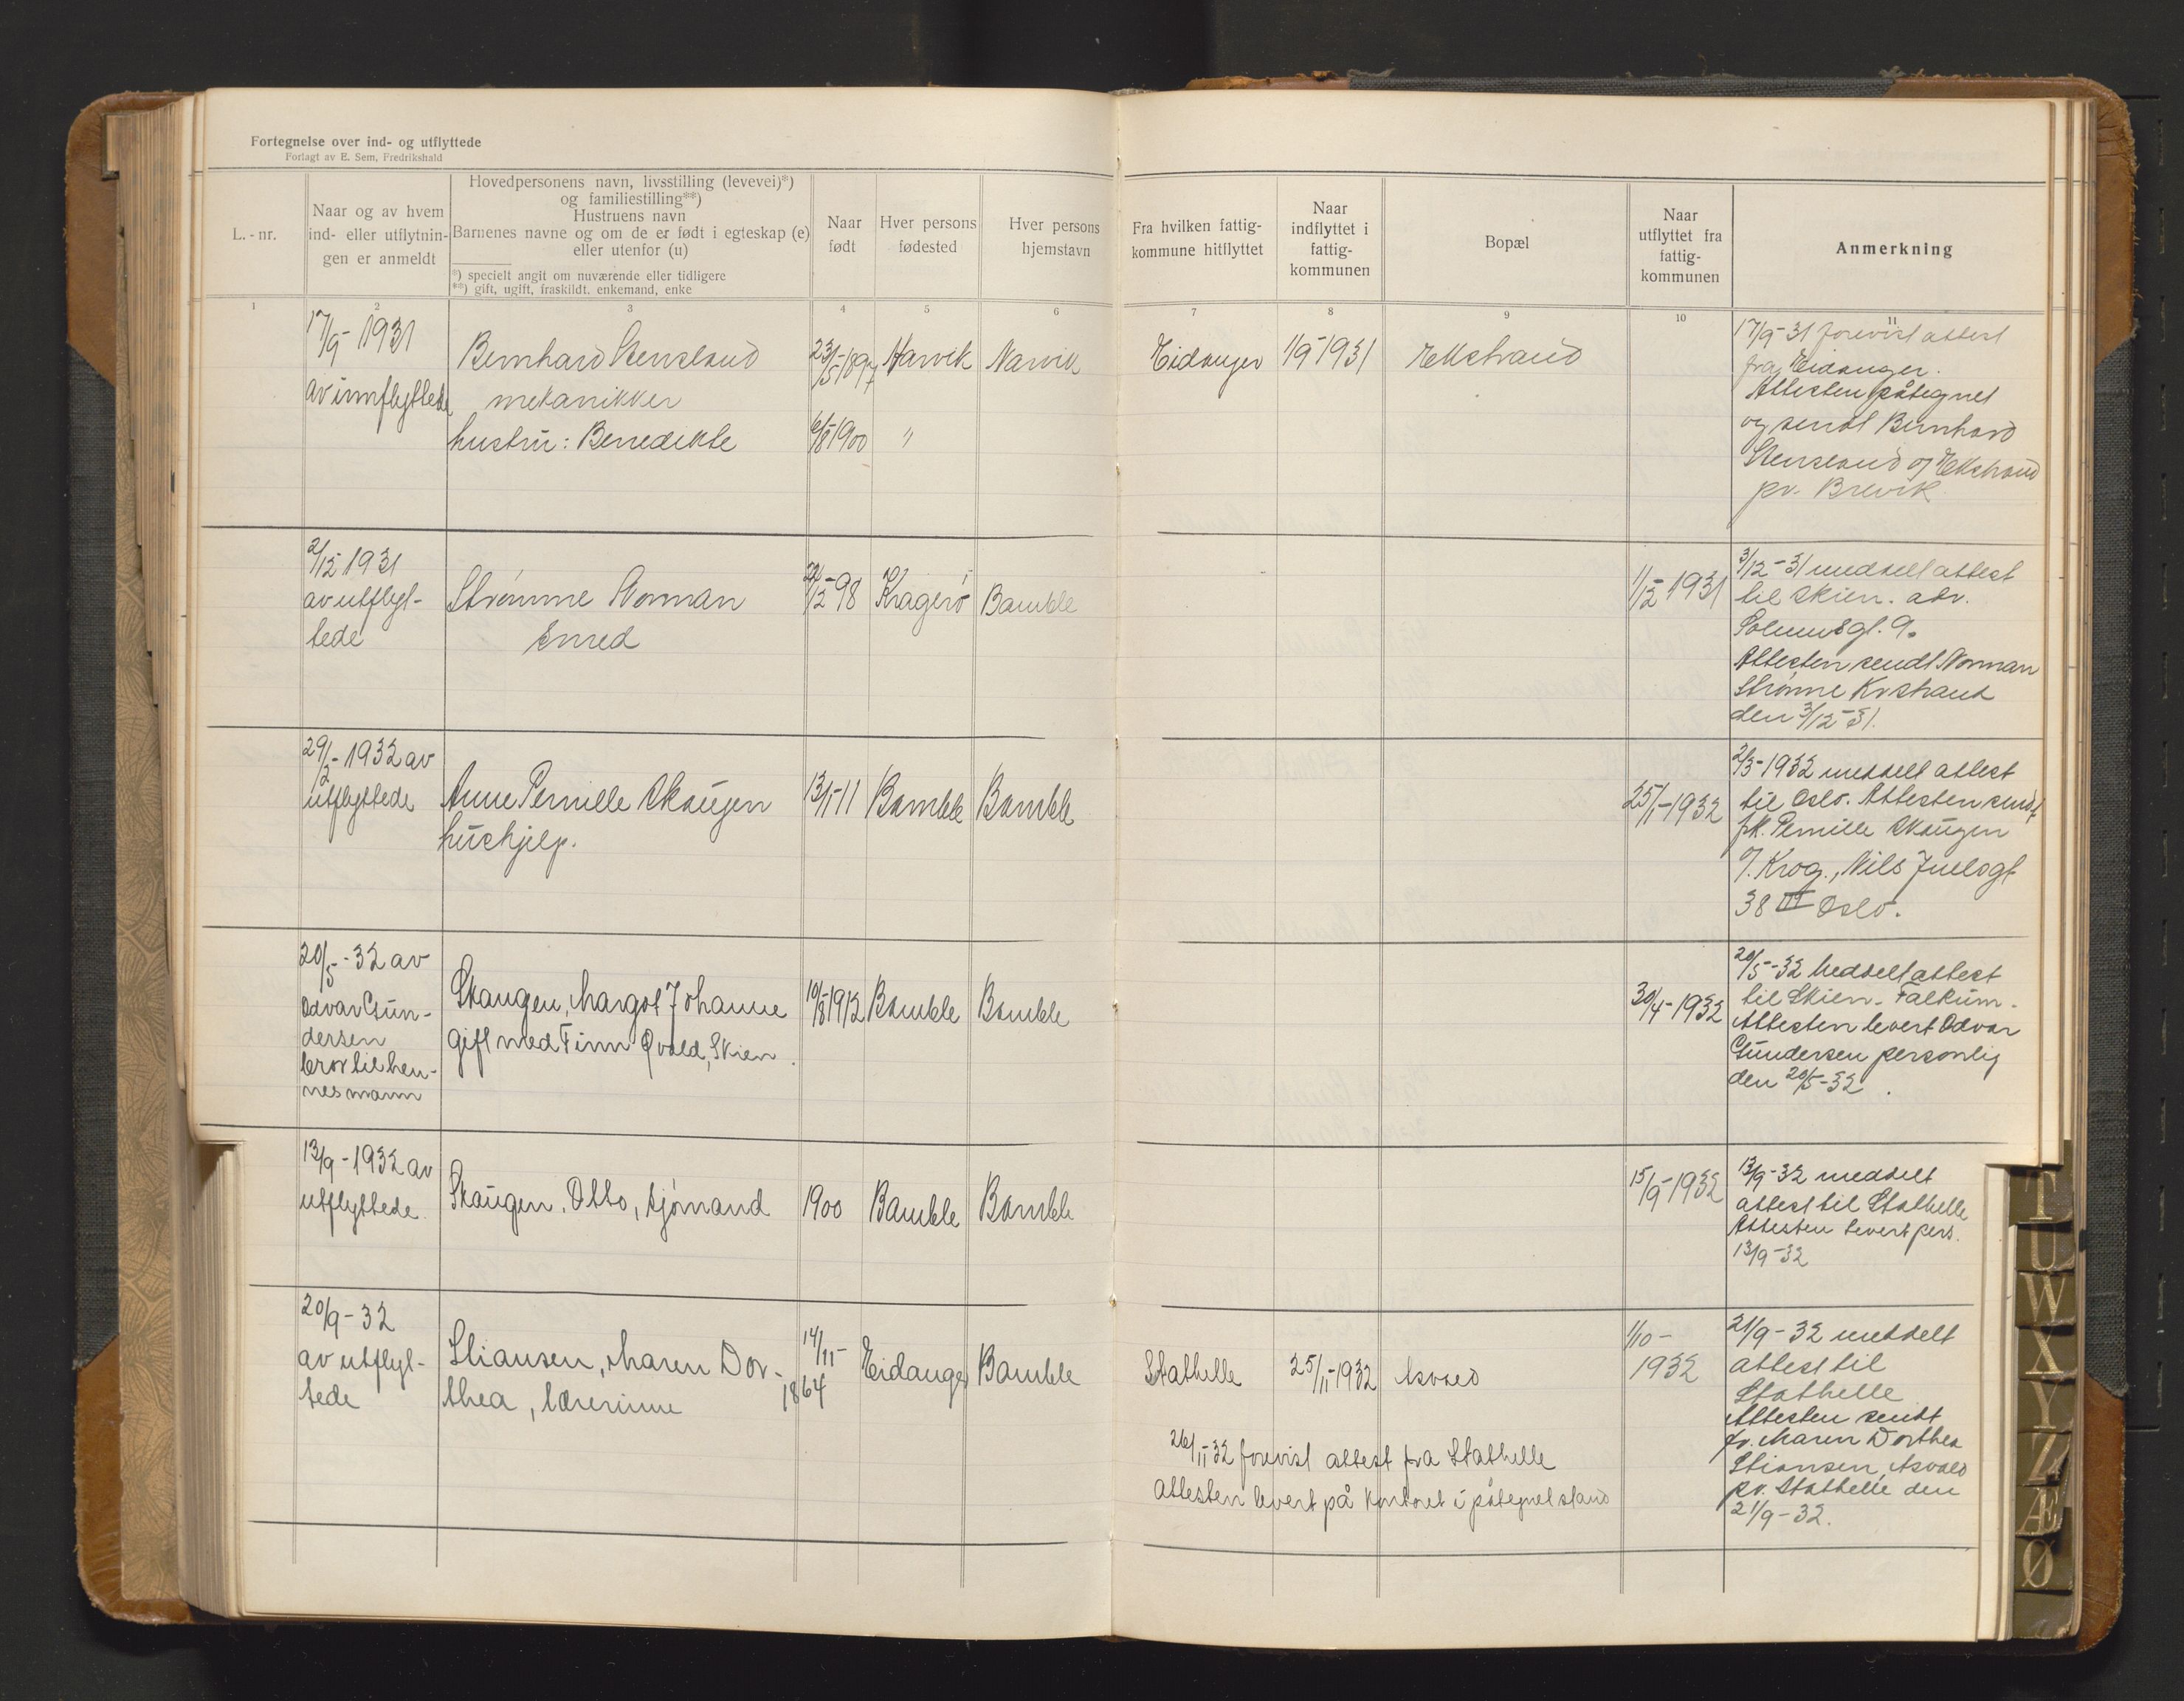 Fortegnelse over ind- og utflyttede
Forlagt av E. Sem, Fredrikshald
L.-nr.
Naar og av hvem
ind- eller utflytnin-
gen er anmeldt
Hovedpersonens navn, livsstilling (levevei)*)
og familiestilling**)
Hustruens navn
Barnenes navne og om de er født i egteskap (e)
eller utenfor (u)
*) specielt angit om nuværende eller tidligere
**) gift, ugift, fraskildt, enkemand, enke
Naar
født
Hver persons
fødested
Hver persons
hjemstavn
Fra hvilken fattig-
kommune hitflyttet
Naar
indflyttet i
fattig-
kommunen
Bopæl
Naar
utflyttet fra
fattig-
kommunen
Anmerkning
1 2 3 4 5 6 7 8 9 10 11
17/9-1931
av innflyttede
Bernhard Stensland
mekanikker
hustru: Benedikte
23/5-1897
6/8-1900
Narvik
"
Narvik
Eidanger
1/9-1931
Ekstrand
17/9-31 forevist attest
fra Eidanger.
Attesten påtegnet
og sendt Bernhard
Stensland og Ekstrand
pr. Brevik
2/12 1931
av utflyt-
tede
Strømme Norman
Smed
/12-98
Kragerø
Bamble
1/12-1931
3/12-31 meddelt attest
til Skien. adr.
Solumsgt. 9.
Attesten sendt Norman
Strømme
den 3/12-31.
29/2-1932 av
utflyttede
Anne Pernille Skaugen
hushjelp.
13/1-11
Bamble
Bamble
25/1-1932
2/3-1932 meddelt attest
til Oslo. Attesten sendt
frk. Pernille Skaugen
Krog., Nils Juelsgt
38 III Oslo.
20/5-32 av
Odvar Gun-
dersen
bror til hen-
nes mann
Skaugen, Margot Johanne
gift med Finn Qvald, Skien.
10/8-1912
Bamble
Bamble
30/4-1932
20/5-32 Meddelt attest
til Skien - Falkum.
Attesten levert Odvar
Gundersen personlig
den 20/5-32.
13/9-1932 av
utflyttede.
Skaugen, Otto, sjømand
1900
Bamble
Bamble
15/9-1932
13/9-32 meddelt
attest til Stathelle
Attesten levert pers.
13/9-32
20/9-32
av utflyt-
tede
Stiansen, Maren Dor-
thea, lærerinne
14/11-
1864
Eidanger
Bamble
Stathelle
25/11-1932
Asvald
1/10-
1932
21/9-32 meddelt
attest til
Stathelle
Attesten sendt
fr. Maren Dorthea
Stiansen, Asvald
pr. Stathelle den
21/9-32.
26/11 32 forevist attest fra Stathelle
Attesten levert på kontoret i påtegnet stand
T
U
W
X
Y
Z
Æ
Ø